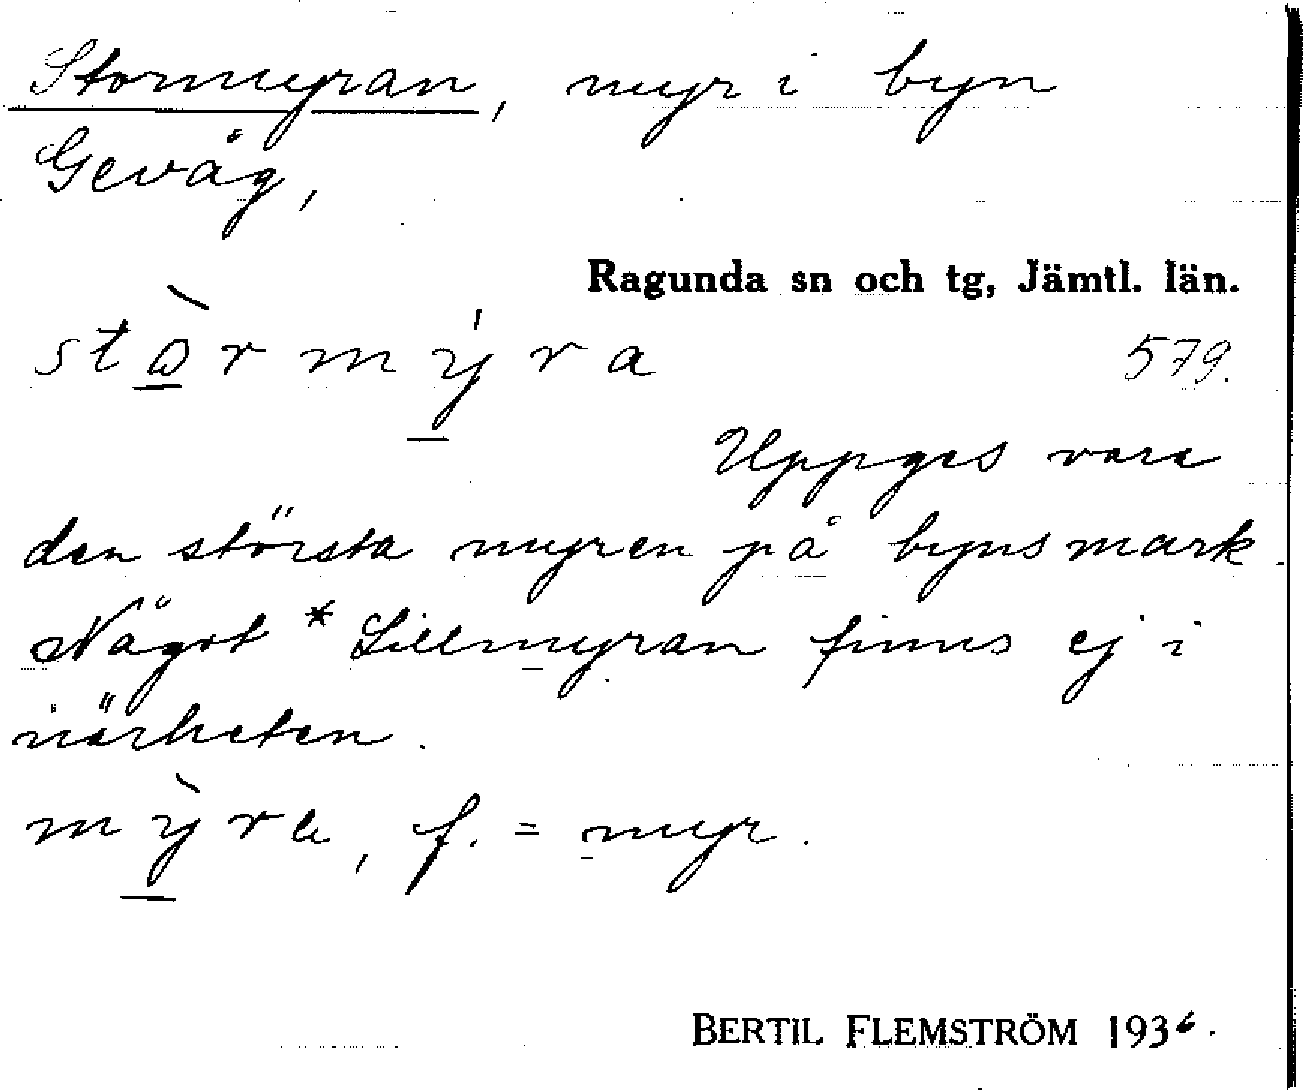 Stormyran, myr i byn
Gevåg,
Ragunda sn och tg, Jämtl. län.
stòrmýra
579.
Uppges vara
den största myren på byns mark.
Något *Lillmyran finns ej i
närheten.
mỳra, f. = myr.
BERTIL FLEMSTRÖM 1936.